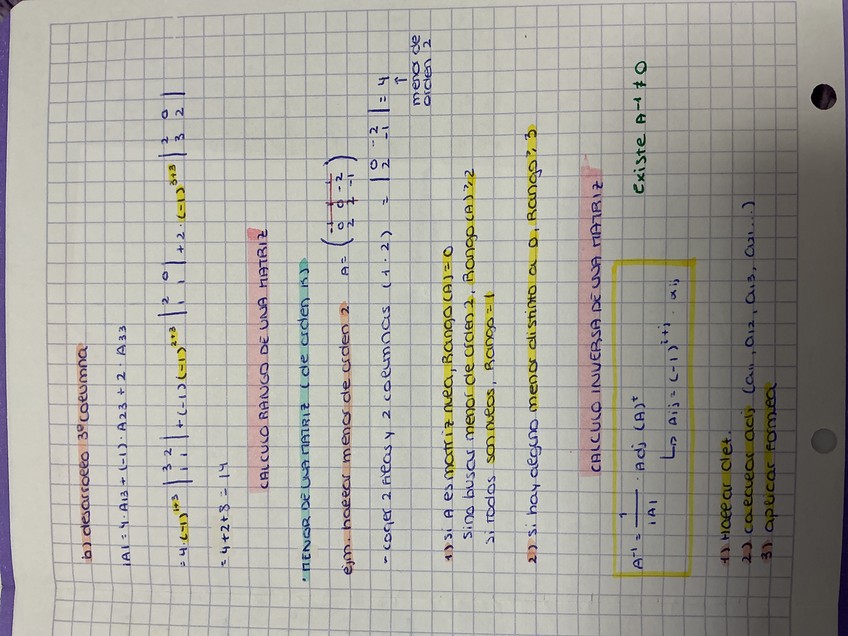 b) desarrollo 3ª columna
|A| = 4 · A13 + (-1) · A23 + 2 · A33
= 4 · (-1)^1+3 |3 2 / 1 1| + (-1)(-1)^2+3 |2 0 / 1 1| + 2 · (-1)^3+3 |2 0 / 3 2|
= 4 + 2 + 8 = 14
CALCULO RANGO DE UNA MATRIZ
· MENOR DE UNA MATRIZ (de orden n)
ejm. hallar menor de orden 2 A = (-1 1 1 / 0 0 -2 / 2 2 -1)
- coger 2 filas y 2 columnas (1·2) = |0 -2 / 2 -1| = 4
↑
menor de
orden 2
1) Si A es matriz nula, Rango (A) = 0
Sino buscar menor de orden 2, Rango (A) ≥ 2
Si todos son nulos, Rango = 1
2) Si hay alguno menor distinto a 0, Rango ≥ 3
CALCULO INVERSA DE UNA MATRIZ
A⁻¹ = 1/|A| · Adj (A)^t existe A⁻¹ ≠ 0
↳ Aij = (-1)^i+j · aij
1) Hallar det.
2) calcular adj (a11, a12, a13, a21...)
3) aplicar fórmula